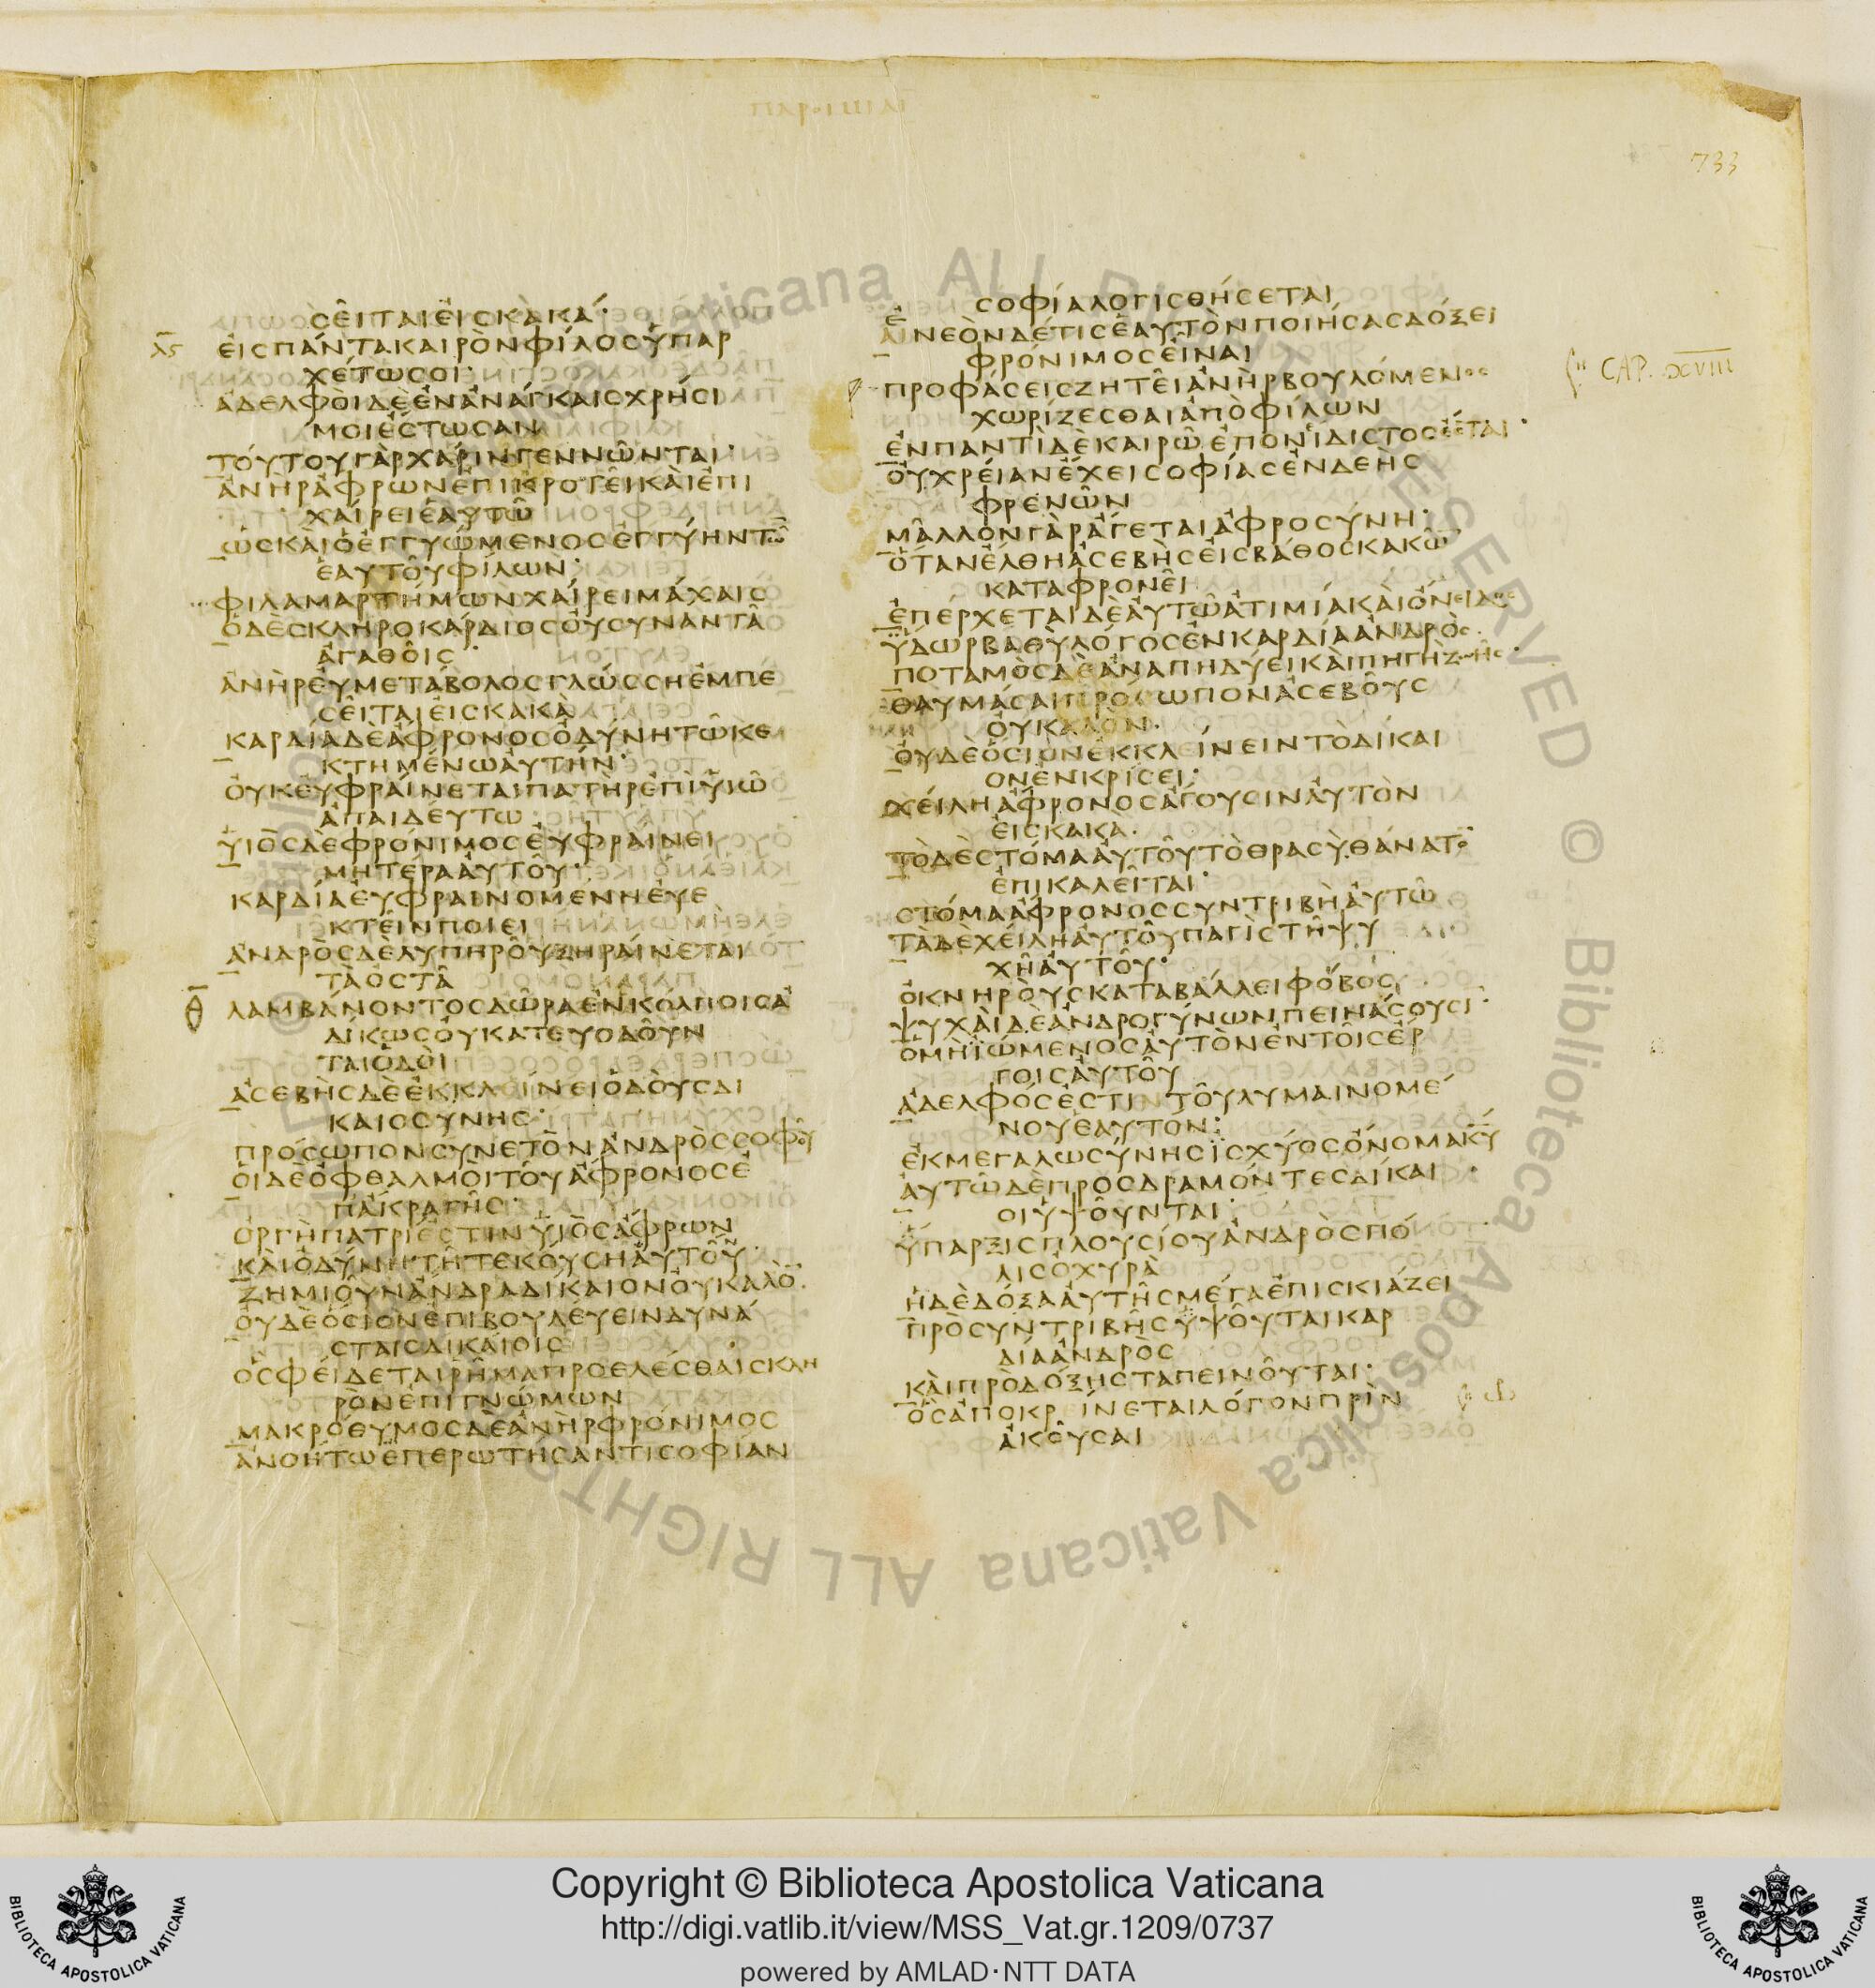 ΠΑΡΟΙΜΙΑΙ
733
ϹΕΙΤΑΙΕΙϹΚΑΚΑ
ΛϚ
ΕΙϹΠΑΝΤΑΚΑΙΡΟΝΦΙΛΟϹΥΠΑΡ
ΧΕΤΩϹΟΙ
ΑΔΕΛΦΟΙΔΕΕΝΑΝΑΓΚΑΙϹΧΡΗϹΙ
ΜΟΙΕϹΤΩϹΑΝ
ΤΟΥΤΟΥΓΑΡΧΑΡΙΝΓΕΝΝΩΝΤΑΙ
ΑΝΗΡΑΦΡΩΝΕΠΙΚΡΟΤΕΙΚΑΙΕΠΙ
ΧΑΙΡΕΙΕΑΥΤΩ
ΩϹΚΑΙΟΕΓΓΥΩΜΕΝΟϹΕΓΓΥΗΝΤΩ
ΕΑΥΤΟΥΦΙΛΩΝ
ΦΙΛΑΜΑΡΤΗΜΩΝΧΑΙΡΕΙΜΑΧΑΙϹ
ΟΔΕϹΚΛΗΡΟΚΑΡΔΙΟϹΟΥϹΥΝΑΝΤΑ
ΑΓΑΘΟΙϹ
ΑΝΗΡΕΥΜΕΤΑΒΟΛΟϹΓΛΩϹϹΗΕΜΠΕ
ϹΕΙΤΑΙΕΙϹΚΑΚΑ
ΚΑΡΔΙΑΔΕΑΦΡΟΝΟϹΟΔΥΝΗΤΩΚΕ
ΚΤΗΜΕΝΩΑΥΤΗΝ
ΟΥΚΕΥΦΡΑΙΝΕΤΑΙΠΑΤΗΡΕΠΙΥΙΩ
ΑΠΑΙΔΕΥΤΩ
ΥΙΟϹΔΕΦΡΟΝΙΜΟϹΕΥΦΡΑΙΝΕΙ
ΜΗΤΕΡΑΑΥΤΟΥ
ΚΑΡΔΙΑΕΥΦΡΑΙΝΟΜΕΝΗΕΥΕ
ΚΤΕΙΝΠΟΙΕΙ
ΑΝΔΡΟϹΔΕΛΥΠΗΡΟΥΞΗΡΑΙΝΕΤΑΙ
ΤΑΟϹΤΑ
Θ
ΛΑΜΒΑΝΟΝΤΟϹΔΩΡΑΕΝΚΟΛΠΟΙϹΑ
ΔΙΚΩϹΟΥΚΑΤΕΥΟΔΟΥΝ
ΤΑΙΟΔΟΙ
ΑϹΕΒΗϹΔΕΕΚΚΛΙΝΕΙΟΔΟΥϹΔΙ
ΚΑΙΟϹΥΝΗϹ
ΠΡΟϹΩΠΟΝϹΥΝΕΤΟΝΑΝΔΡΟϹϹΟΦΟΥ
ΟΙΔΕΟΦΘΑΛΜΟΙΤΟΥΑΦΡΟΝΟϹΕ
ΠΑΚΡΑΓΗϹ
ΟΡΓΗΠΑΤΡΙΕϹΤΙΝΥΙΟϹΑΦΡΩΝ
ΚΑΙΟΔΥΝΗΤΗΤΕΚΟΥϹΗΑΥΤΟΥ
ΖΗΜΙΟΥΝΑΝΔΡΑΔΙΚΑΙΟΝΟΥΚΑΛΟ
ΟΥΔΕΟϹΙΟΝΕΠΙΒΟΥΛΕΥΕΙΝΔΥΝΑ
ϹΤΑΙϹΔΙΚΑΙΟΙϹ
ΟϹΦΕΙΔΕΤΑΙΡΗΜΑΠΡΟΕΛΕϹΘΑΙϹΚΛΗ
ΡΟΝΕΠΙΓΝΩΜΩΝ
ΜΑΚΡΟΘΥΜΟϹΔΕΑΝΗΡΦΡΟΝΙΜΟϹ
ΑΝΟΗΤΩΕΠΕΡΩΤΗϹΑΝΤΙϹΟΦΙΑΝ
ϹΟΦΙΑΛΟΓΙϹΘΗϹΕΤΑΙ
ΑΙΝΕΟΝΔΕΤΙϹΕΑΥΤΟΝΠΟΙΗϹΑϹΔΟΞΕΙ
ΦΡΟΝΙΜΟϹΕΙΝΑΙ
CAP. XVIII
ΠΡΟΦΑϹΕΙϹΖΗΤΕΙΑΝΗΡΒΟΥΛΟΜΕΝΟϹ
ΧΩΡΙΖΕϹΘΑΙΑΠΟΦΙΛΩΝ
ΕΝΠΑΝΤΙΔΕΚΑΙΡΩΕΠΟΝΙΔΙϹΤΟϹΕϹΤΑΙ
ΟΥΧΡΕΙΑΝΕΧΕΙϹΟΦΙΑϹΕΝΔΕΗϹ
ΦΡΕΝΩΝ
ΜΑΛΛΟΝΓΑΡΑΓΕΤΑΙΑΦΡΟϹΥΝΗ
ΟΤΑΝΕΛΘΗΑϹΕΒΗϹΕΙϹΒΑΘΟϹΚΑΚΩ
ΚΑΤΑΦΡΟΝΕΙ
ΕΠΕΡΧΕΤΑΙΔΕΑΥΤΩΑΤΙΜΙΑΚΑΙΟΝΕΙΔΟϹ
ΥΔΩΡΒΑΘΥΛΟΓΟϹΕΝΚΑΡΔΙΑΑΝΔΡΟϹ
ΠΟΤΑΜΟϹΔΕΑΝΑΠΗΔΥΕΙΚΑΙΠΗΓΗΖΩΗϹ
ΘΑΥΜΑϹΑΙΠΡΟϹΩΠΟΝΑϹΕΒΟΥϹ
ΟΥΚΑΛΟΝ
ΟΥΔΕΟϹΙΟΝΕΚΚΛΕΙΝΕΙΝΤΟΔΙΚΑΙ
ΟΝΕΝΚΡΙϹΕΙ
ΧΕΙΛΗΑΦΡΟΝΟϹΑΓΟΥϹΙΝΑΥΤΟΝ
ΕΙϹΚΑΚΑ
ΤΟΔΕϹΤΟΜΑΑΥΤΟΥΤΟΘΡΑϹΥΘΑΝΑΤΟ
ΕΠΙΚΑΛΕΙΤΑΙ
ϹΤΟΜΑΑΦΡΟΝΟϹϹΥΝΤΡΙΒΗΑΥΤΩ
ΤΑΔΕΧΕΙΛΗΑΥΤΟΥΠΑΓΙϹΤΗΨΥ
ΧΗΑΥΤΟΥ
ΟΚΝΗΡΟΥϹΚΑΤΑΒΑΛΛΕΙΦΟΒΟϹ
ΨΥΧΑΙΔΕΑΝΔΡΟΓΥΝΩΝΠΕΙΝΑϹΟΥϹΙ
ΟΜΗΙΩΜΕΝΟϹΑΥΤΟΝΕΝΤΟΙϹΕΡ
ΓΟΙϹΑΥΤΟΥ
ΑΔΕΛΦΟϹΕϹΤΙΝΤΟΥΛΥΜΑΙΝΟΜΕ
ΝΟΥΕΑΥΤΟΝ
ΕΚΜΕΓΑΛΩϹΥΝΗϹΙϹΧΥΟϹΟΝΟΜΑΚΥ
ΑΥΤΩΔΕΠΡΟϹΔΡΑΜΟΝΤΕϹΔΙΚΑΙ
ΟΙΥΨΟΥΝΤΑΙ
ΥΠΑΡΞΙϹΠΛΟΥϹΙΟΥΑΝΔΡΟϹΠΟ
ΛΙϹΟΧΥΡΑ
ΗΔΕΔΟΞΑΑΥΤΗϹΜΕΓΑΕΠΙϹΚΙΑΖΕΙ
ΠΡΟϹΥΝΤΡΙΒΗϹΥΨΟΥΤΑΙΚΑΡ
ΔΙΑΑΝΔΡΟϹ
ΚΑΙΠΡΟΔΟΞΗϹΤΑΠΕΙΝΟΥΤΑΙ
ΟϹΑΠΟΚΡΕΙΝΕΤΑΙΛΟΓΟΝΠΡΙΝ
ΑΚΟΥϹΑΙ
© Biblioteca Apostolica Vaticana ALL RIGHTS RESERVED
Copyright © Biblioteca Apostolica Vaticana
http://digi.vatlib.it/view/MSS_Vat.gr.1209/0737
powered by AMLAD·NTT DATA
BIBLIOTECA APOSTOLICA VATICANA
BIBLIOTECA APOSTOLICA VATICANA